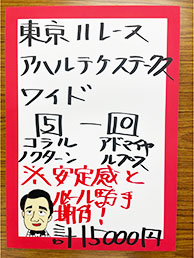 東京11レース
アハルテケステークス
ワイド
5 - 10
コラル アドマイヤ
ノクターン ルプス
※安定感と
期待!
計15000円